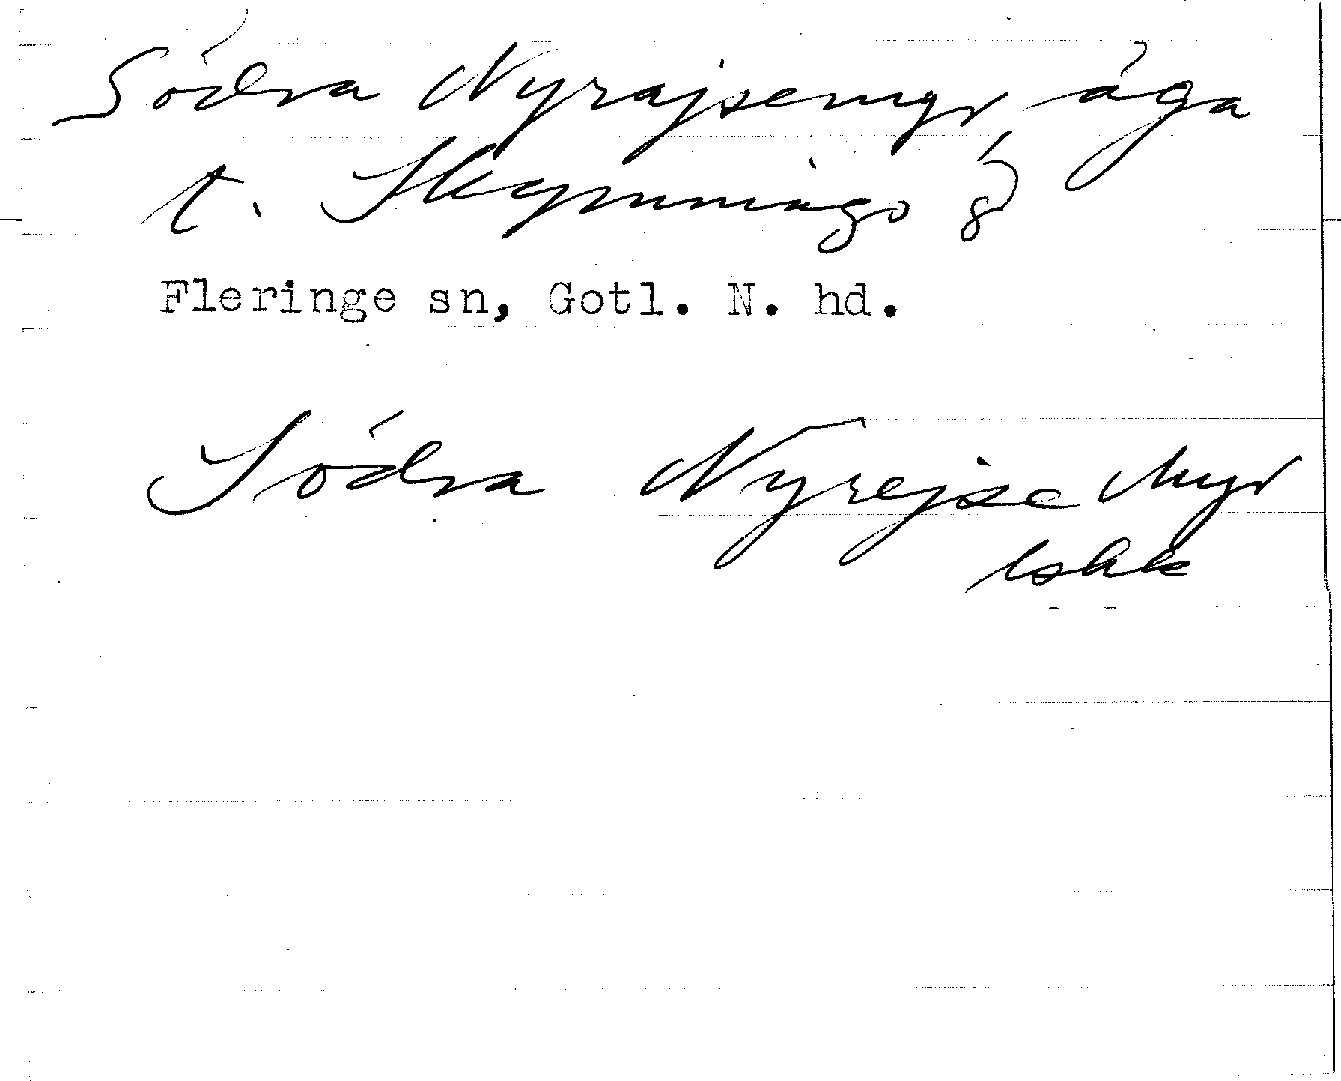 Södra Nyrajsemyr, äga
t. Skymnings 8
Fleringe sn, Gotl. N. hd.
Södra Nyrejse Myr
lskk